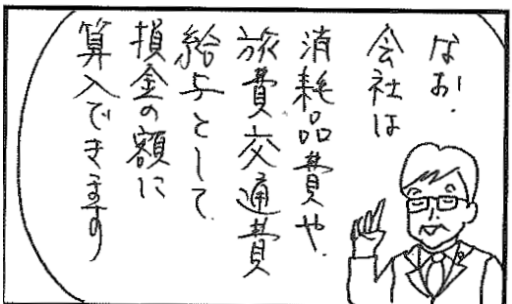 なお、
会社は
消耗品費や、
旅費交通費
給与として、
損金の額に
算入できます